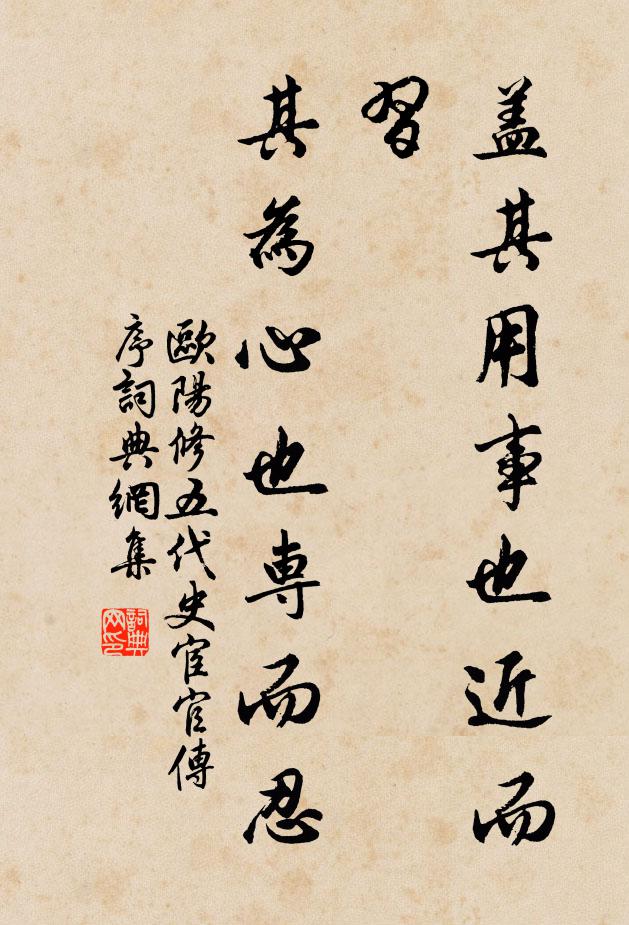 盖其用事也近而
習
其為心也専而忍
歐陽修五代史宦官傳
序詞典網集
詞典
网印